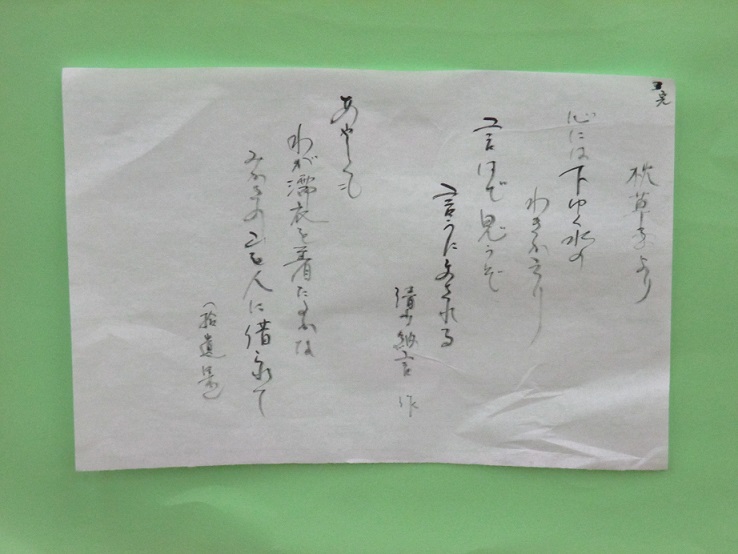 枕草子より
心には下ゆく水の
わきかえり
言はで思うぞ
言うにまされる
清少納言 作
あやしくも
わが濡衣を着たるかな
みかさの山を人に借られて
(拾遺集)